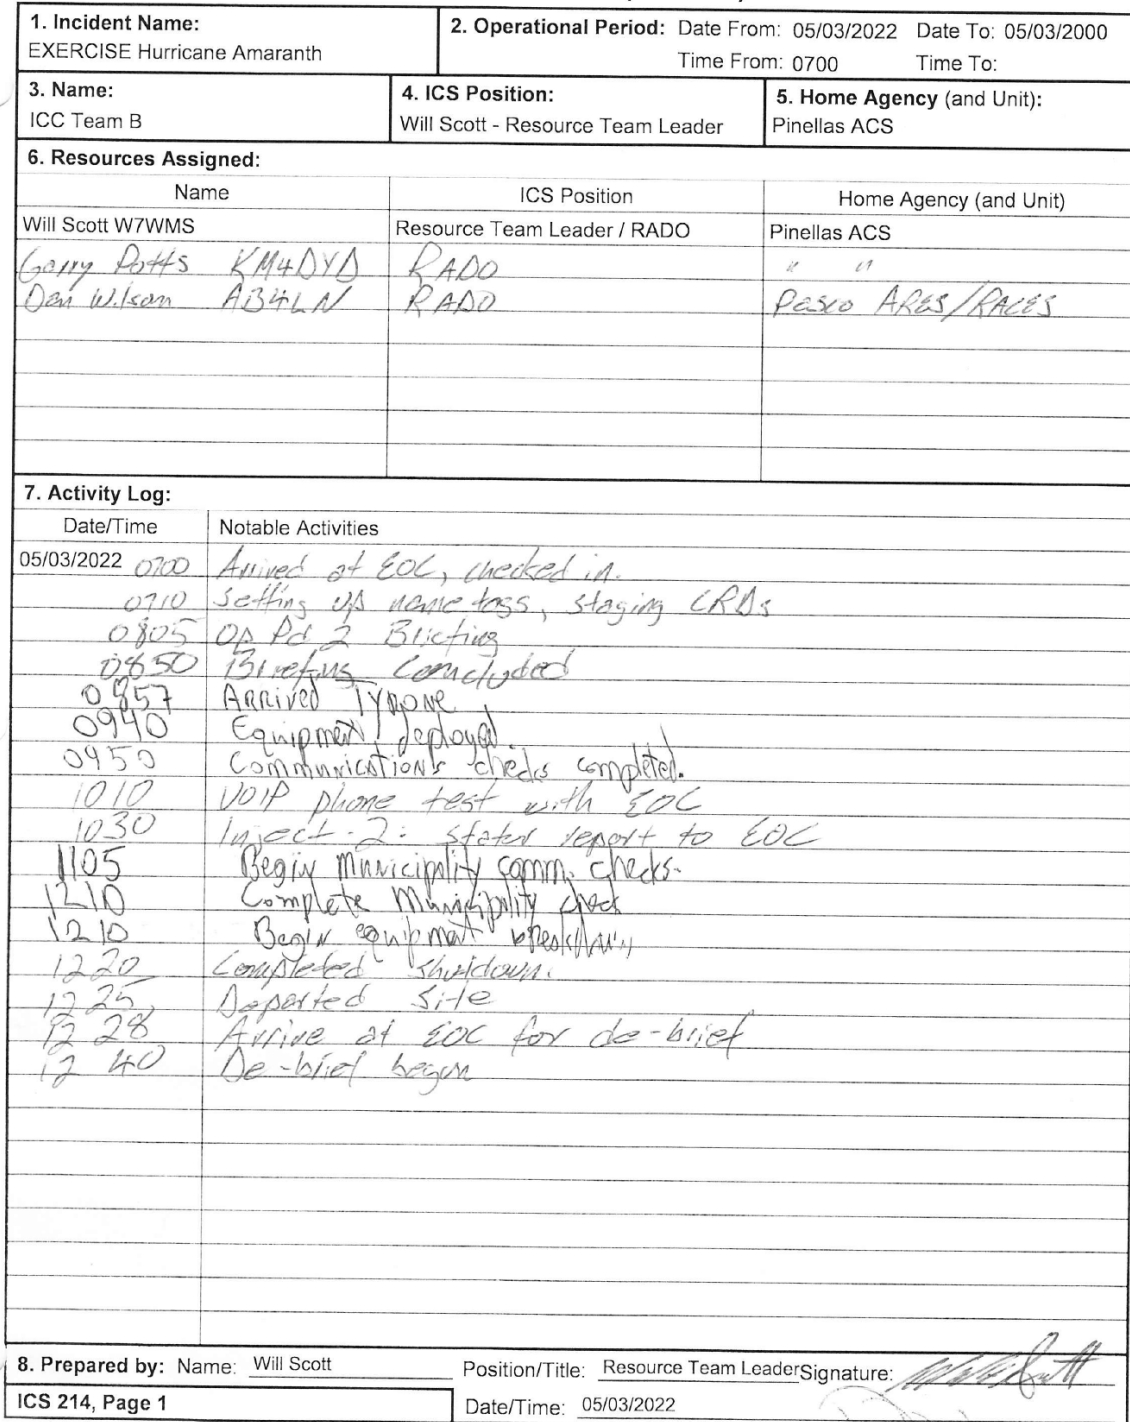 1. Incident Name:
EXERCISE Hurricane Amaranth
2. Operational Period: Date From: 05/03/2022 Date To: 05/03/2000
Time From: 0700 Time To:
3. Name:
ICC Team B
4. ICS Position:
Will Scott - Resource Team Leader
5. Home Agency (and Unit):
Pinellas ACS
6. Resources Assigned:
Name ICS Position Home Agency (and Unit)
Will Scott W7WMS Resource Team Leader / RADO Pinellas ACS
Garry Potts KM4DYD RADO " "
Dan Wilson AB4LN RADO Pasco ARES/RACES
7. Activity Log:
Date/Time Notable Activities
05/03/2022 0700 Arrived at EOC, checked in.
0710 Setting up name tags, staging CRDs
0805 Op Pd 2 Briefing
0850 Briefing Concluded
0857 Arrived Tyrone
0940 Equipment deployed.
0950 Communications checks completed.
1010 VOIP phone test with EOC
1030 Inject-2: status report to EOC
1105 Begin Municipality comm. checks.
1210 Complete Municipality check
1210 Begin equipment breakdown
1220 Completed shutdown.
1225 Departed Site
1228 Arrive at EOC for de-brief
1240 De-brief began
8. Prepared by: Name: Will Scott Position/Title: Resource Team Leader Signature:
ICS 214, Page 1 Date/Time: 05/03/2022